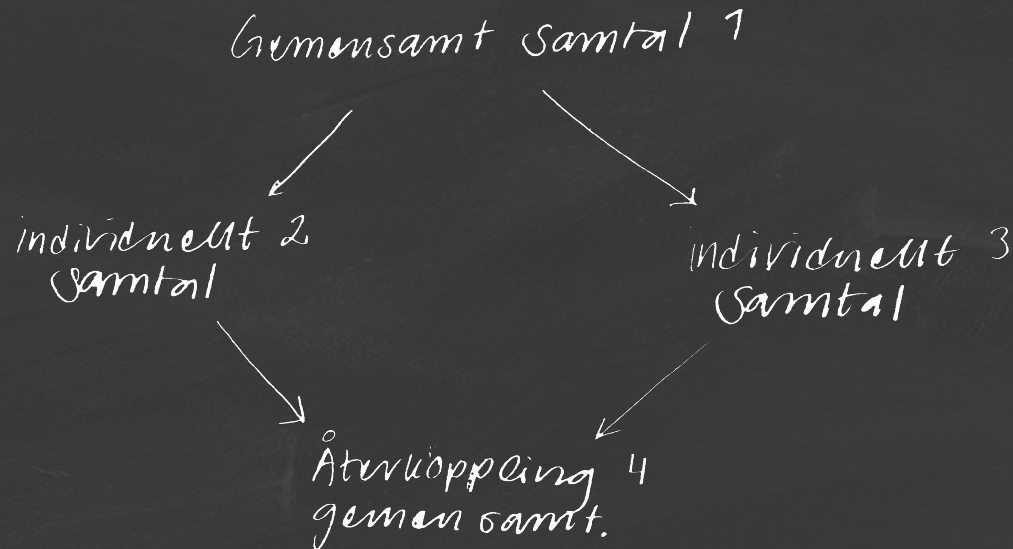 Gemensamt samtal 1
individuellt 2
samtal
individuellt 3
samtal
Återkoppling 4
gemensamt.